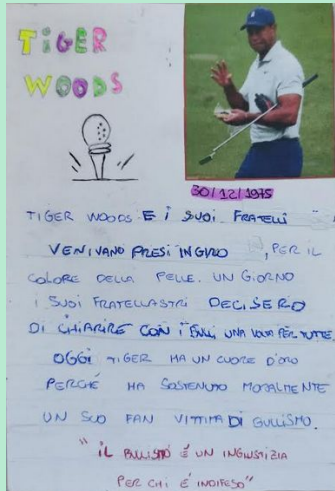 TIGER
WOODS
30/12/1975
TIGER WOODS E i SUOI FRATELLI
VENIVANO PRESI IN GIRO , PER IL
COLORE DELLA PELLE. UN GIORNO
I SUOI FRATELLASTRI DECISERO
DI CHIARIRE CON i BULLI UNA VOLTA PER TUTTE.
OGGI TIGER HA UN CUORE D'ORO
PERCHÉ HA SOSTENUTO MORALMENTE
UN SUO FAN VITTIMA DI BULLISMO.
"IL BULLISMO É UN INGIUSTIZIA
PER CHI É INDIFESO"